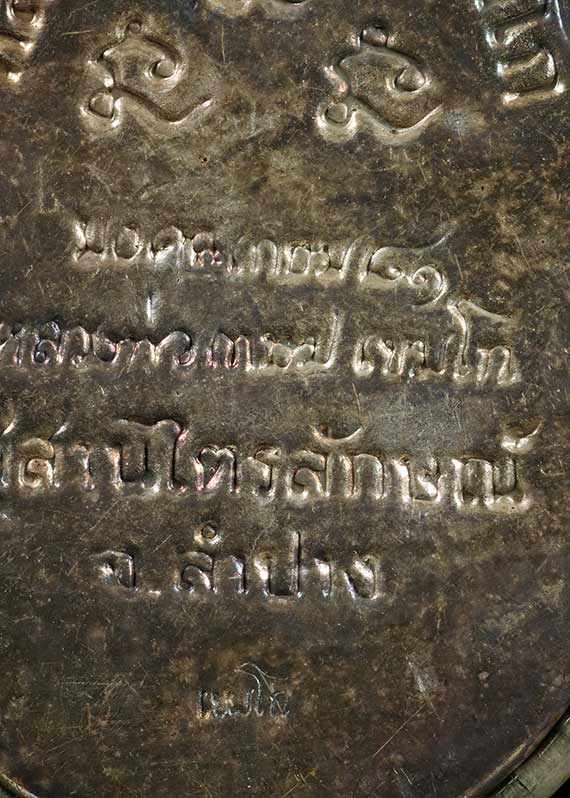 มงคลเกษม ๘๑
หลวงพ่อเกษม เขมโก
สุสานไตรลักษณ์
จ.ลำปาง
เขมโก